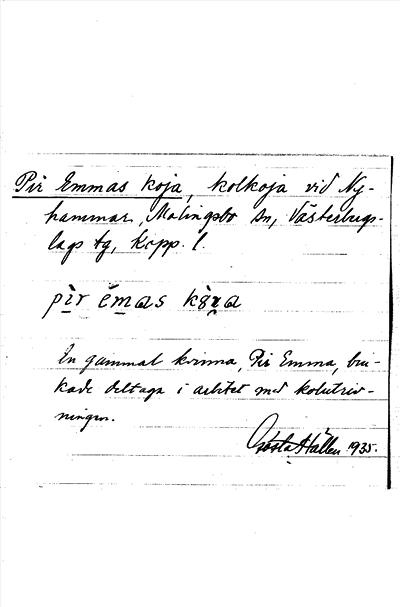 Pir Emmas koja, kolkoja vid Ny-
hammar, Malingsbo sn, Västerbergs-
lags tg, Kopp. l.
pir emas
En gammal kvinna, Pir Emma, bru-
kade deltaga i arbetet med kolutriv-
ningen.
Gösta Hallen 1935.